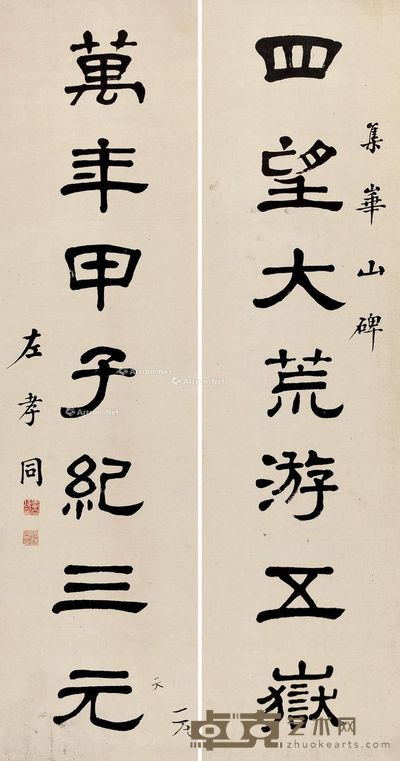 集華山碑
四望大荒游五嶽
萬年甲子紀三元
左孝同
Artron.Net
Artron.Net
Artron.Net
Artron.Net
卓克艺术网
zhuokearts.com